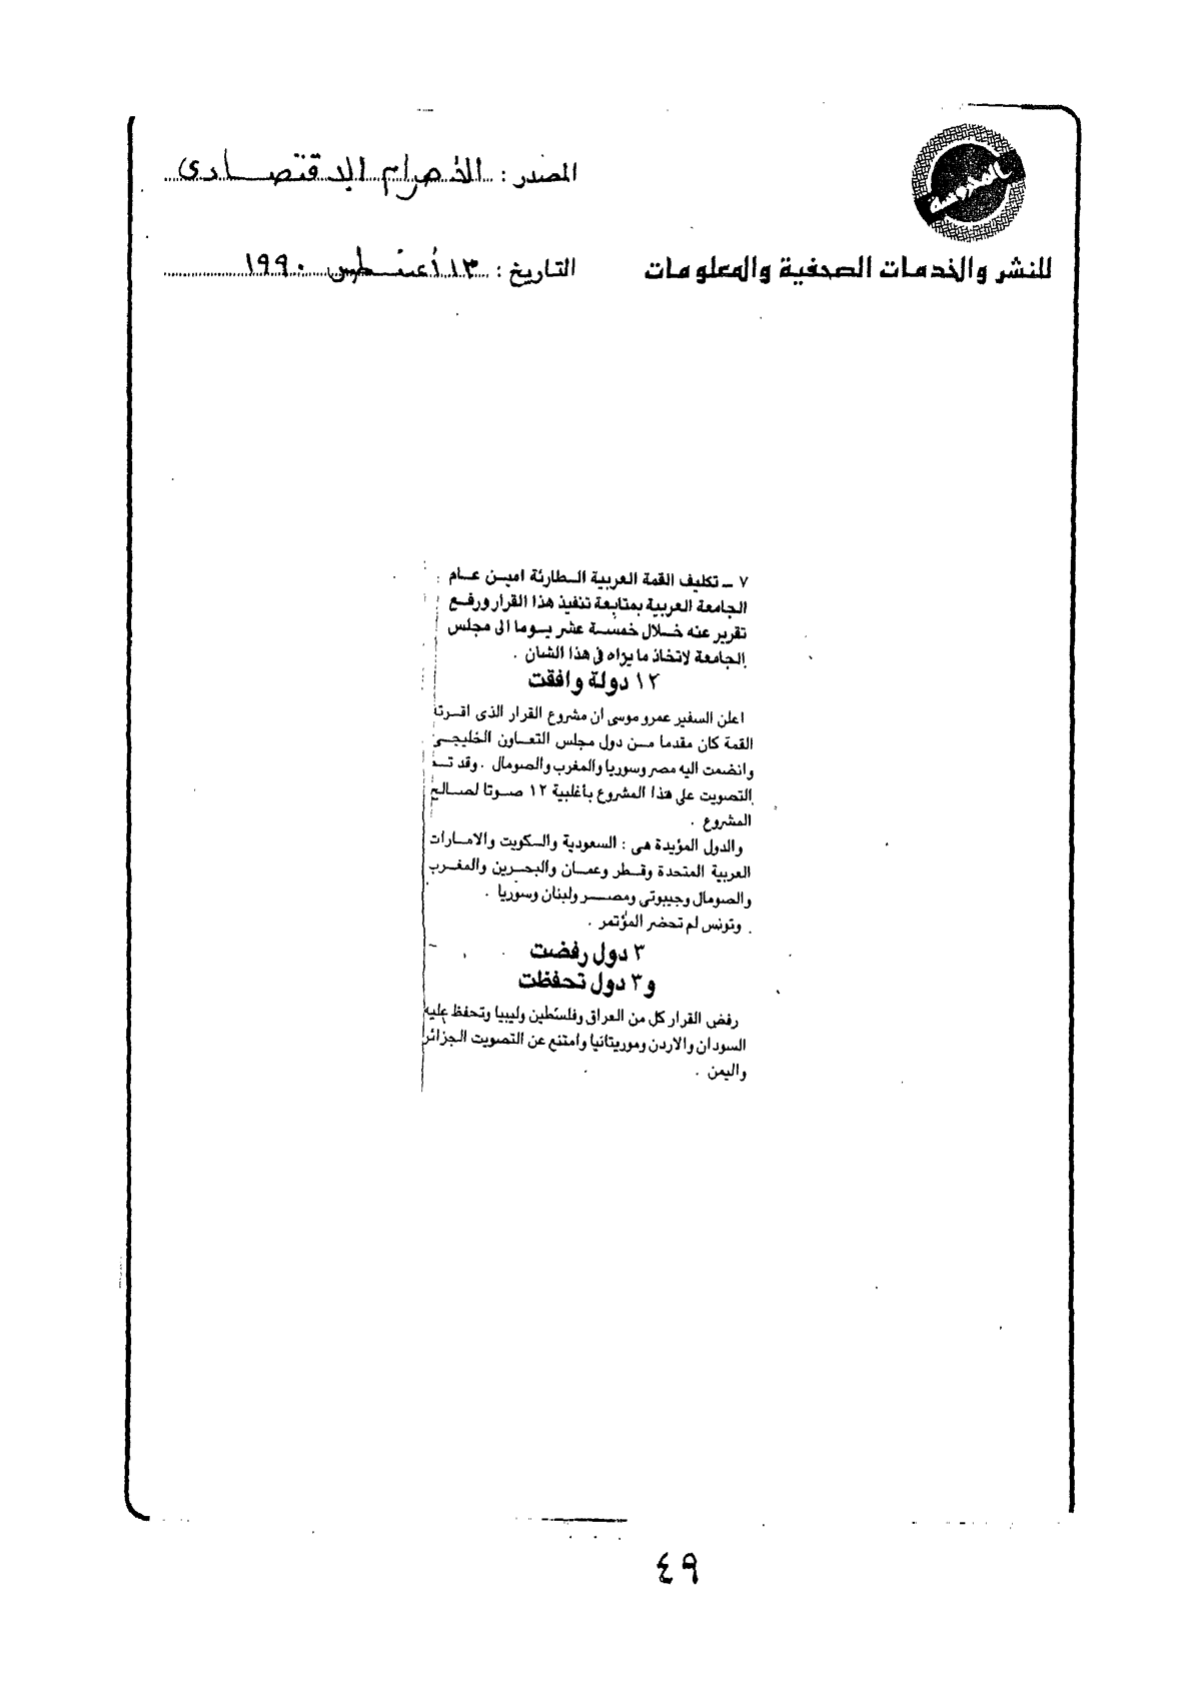 المصدر : الأهرام الاقتصادى
المحروسة
للنشر والخدمات الصحفية والمعلومات
التاريخ : ١٣ أغسطس ١٩٩٠
٧ ـ تكليف القمة العربية الطارئة امين عام
الجامعة العربية بمتابعة تنفيذ هذا القرار ورفع
تقرير عنه خلال خمسة عشر يوما الى مجلس
الجامعة لاتخاذ ما يراه فى هذا الشان .
١٢ دولة وافقت
اعلن السفير عمرو موسى ان مشروع القرار الذى اقرته
القمة كان مقدما من دول مجلس التعاون الخليجى
وانضمت اليه مصر وسوريا والمغرب والصومال . وقد تم
التصويت على هذا المشروع بأغلبية ١٢ صوتا لصالح
المشروع .
والدول المؤيدة هى : السعودية والكويت والامارات
العربية المتحدة وقطر وعمان والبحرين والمغرب
والصومال وجيبوتى ومصر ولبنان وسوريا .
وتونس لم تحضر المؤتمر .
٣ دول رفضت
و٣ دول تحفظت
رفض القرار كل من العراق وفلسطين وليبيا وتحفظ عليه
السودان والاردن وموريتانيا وامتنع عن التصويت الجزائر
واليمن .
٤٩